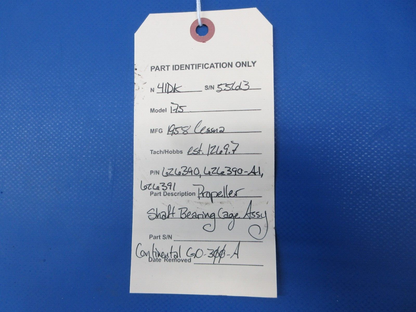 PART IDENTIFICATION ONLY
N 41DK S/N 55663
Model 175
MFG 1958 Cessna
Tach/Hobbs est. 1269.7
P/N 626340, 626390-A1,
626391
Part Description Propeller
Shaft Bearing Cage Assy
Part S/N
Continental GO-300-A
Date Removed